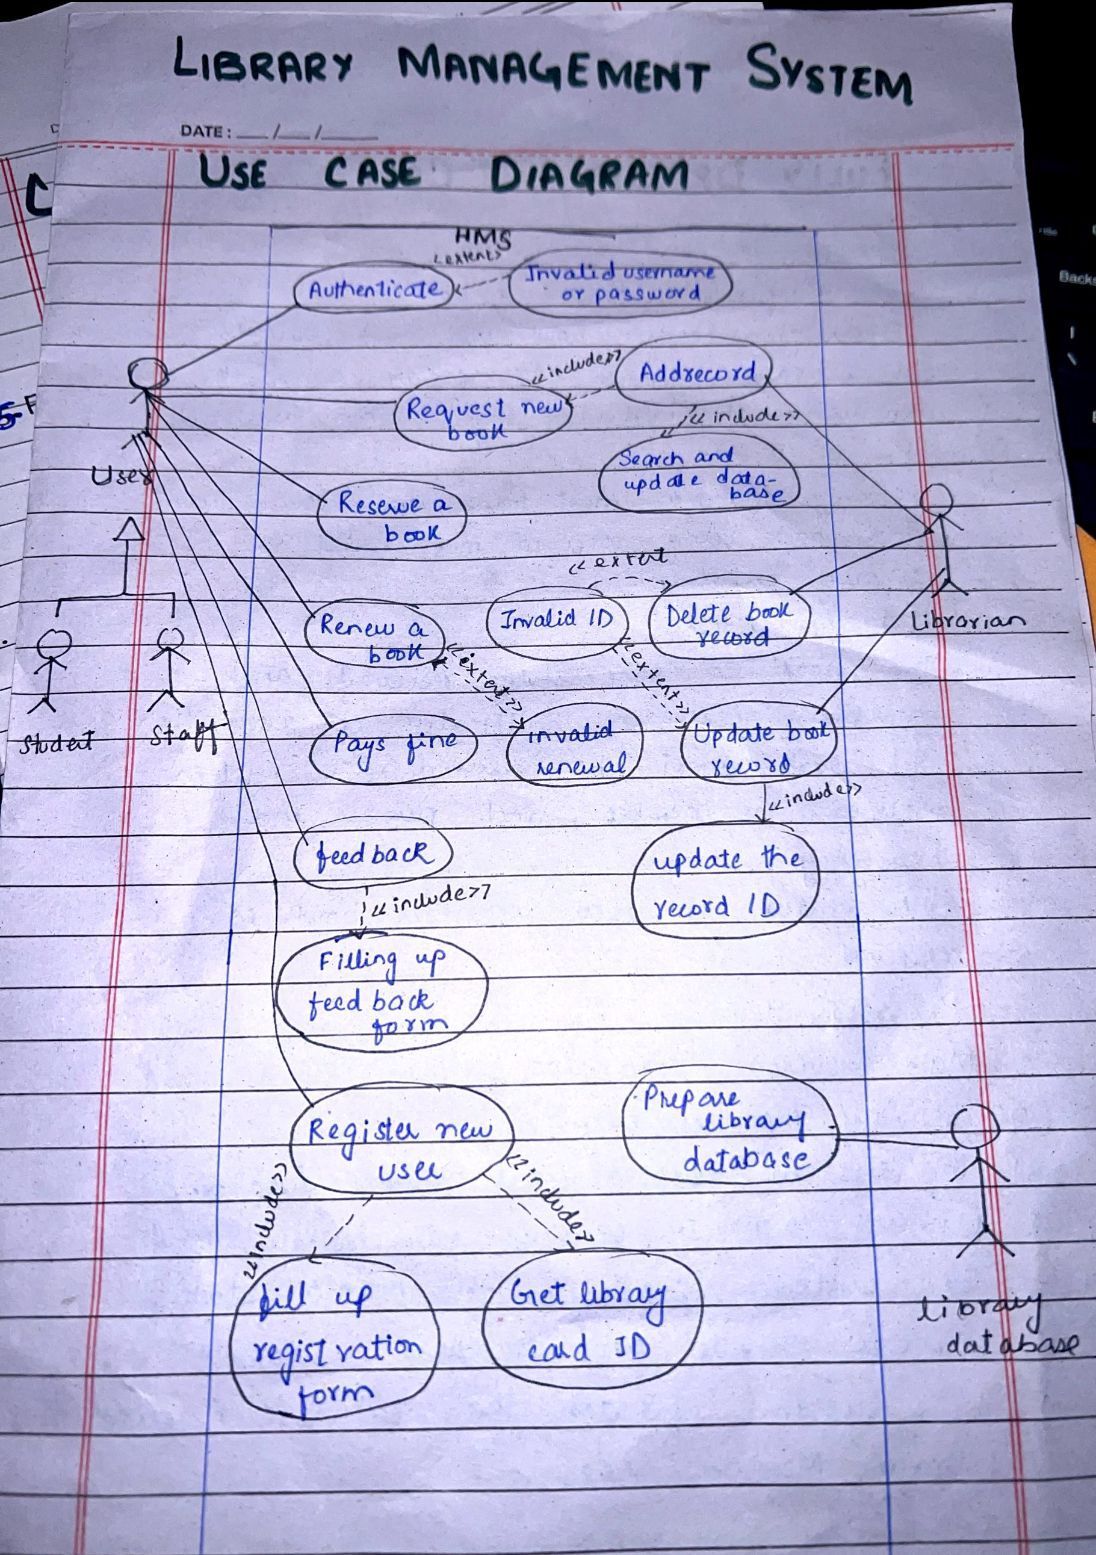 LIBRARY MANAGEMENT SYSTEM
DATE: __/__/____
USE CASE DIAGRAM
HMS
<extent>
Authenticate
Invalid username
or password
<<include>>
Addrecord
Request new
book
<<include>>
Search and
update data-
base
User
Reserve a
book
<<extent
Invalid ID
Delete book
record
Librarian
Renew a
book
<<extent>>
<<extent>>
Student
Staff
Pays fine
invalid
renewal
Update book
record
<<include>>
feedback
update the
record ID
<<include>>
Filling up
feedback
form
Prepare
library
database
Register new
user
<<include>>
<<include>>
fill up
registration
form
Get library
card ID
library
database
Backs